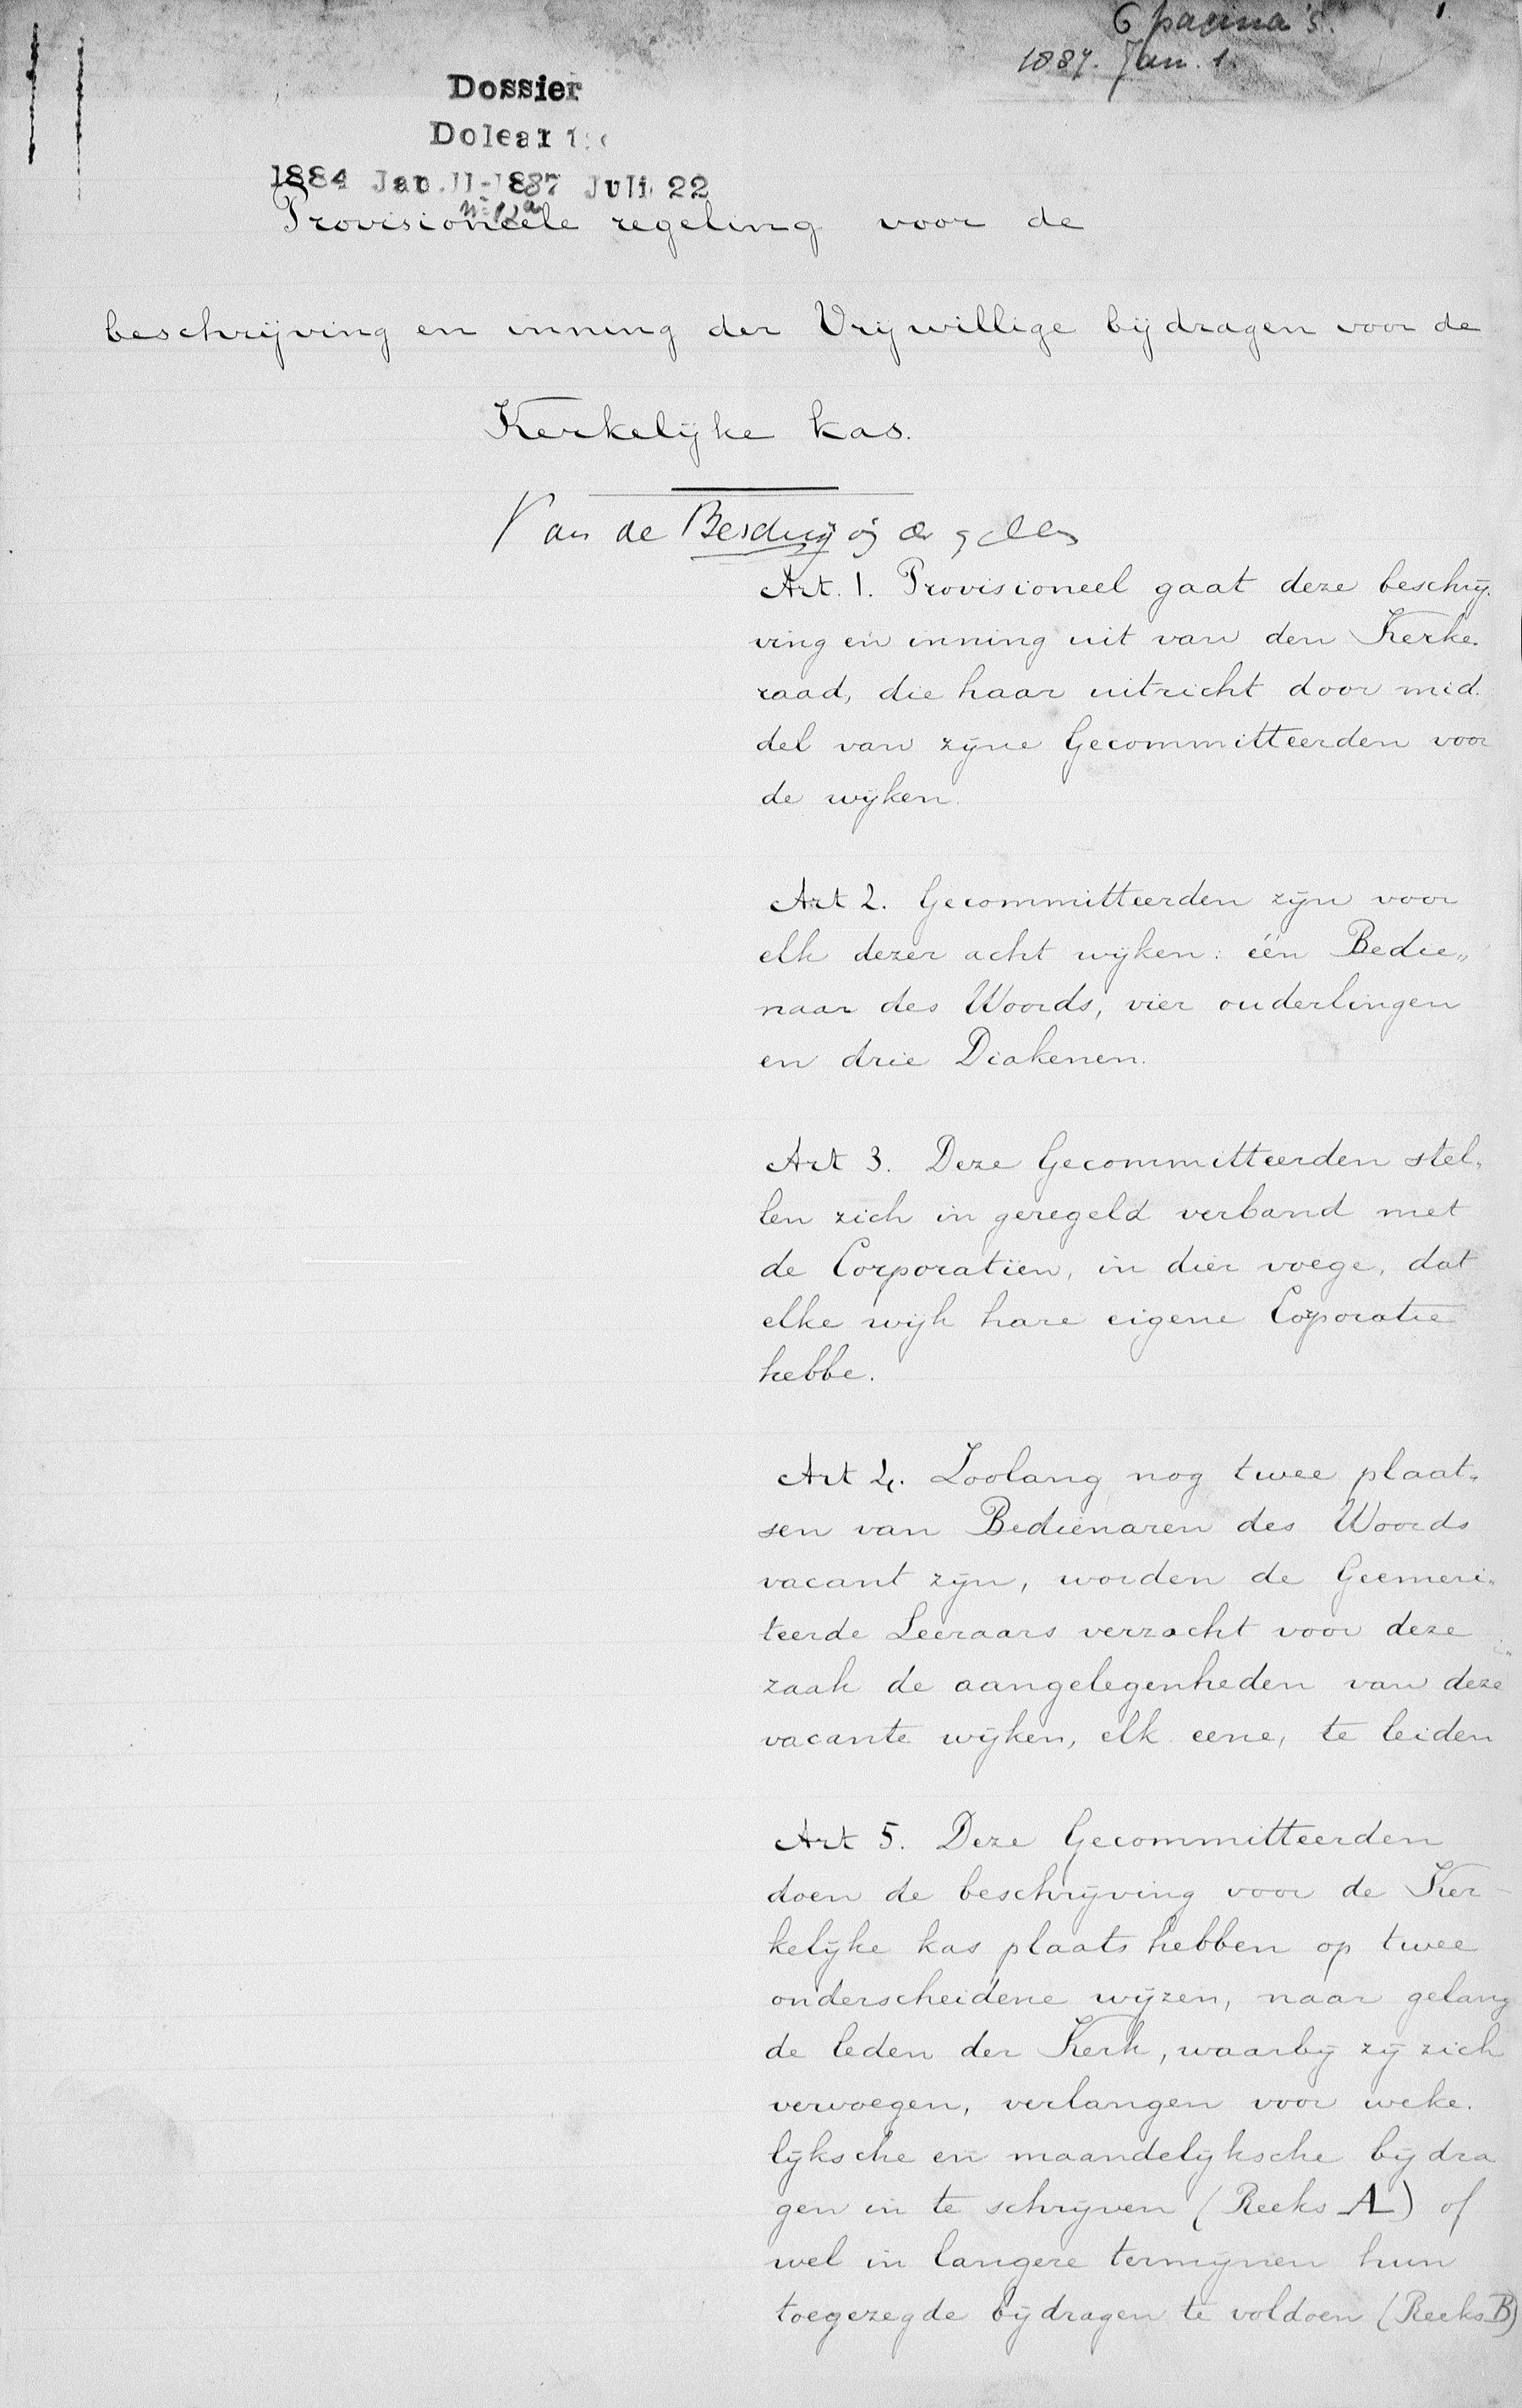 6 pagina's. 1.
1887. Jan. 1.
Dossier
Doleantie
1884 Jan. 11-1887 Juli 22
No 12a
Provisioneele regeling voor de
beschrijving en inning der Vrijwillige bijdragen voor de
Kerkelijke kas.
Van de
Art. 1. Provisioneel gaat deze beschrij-
ving en inning uit van den Kerke-
raad, die haar uitricht door mid-
del van zijne Gecommitteerden voor
de wijken.
Art 2. Gecommitteerden zijn voor
elk dezer acht wijken: één Bedie„
naar des Woords, vier ouderlingen
en drie Diakenen.
Art 3. Deze Gecommitteerden stel„
len zich in geregeld verband met
de Corporatiën, in dier voege, dat
elke wijk hare eigene Corporatie
hebbe.
Art 4. Zoolang nog twee plaat„
sen van Bedienaren des Woords
vacant zijn, worden de Geemeri„
teerde Leeraars verzocht voor deze
zaak de aangelegenheden van deze
vacante wijken, elk eene, te leiden
Art 5. Deze Gecommitteerden
doen de beschrijving voor de Ker-
kelijke kas plaats hebben op twee
onderscheidene wijzen, naar gelang
de leden der Kerk, waarbij zij zich
vervoegen, verlangen voor weke-
lijksche en maandelijksche bijdra
gen in te schrijven (Reeks A) of
wel in langere termijnen hun
toegezegde bijdragen te voldoen (Reeks B)